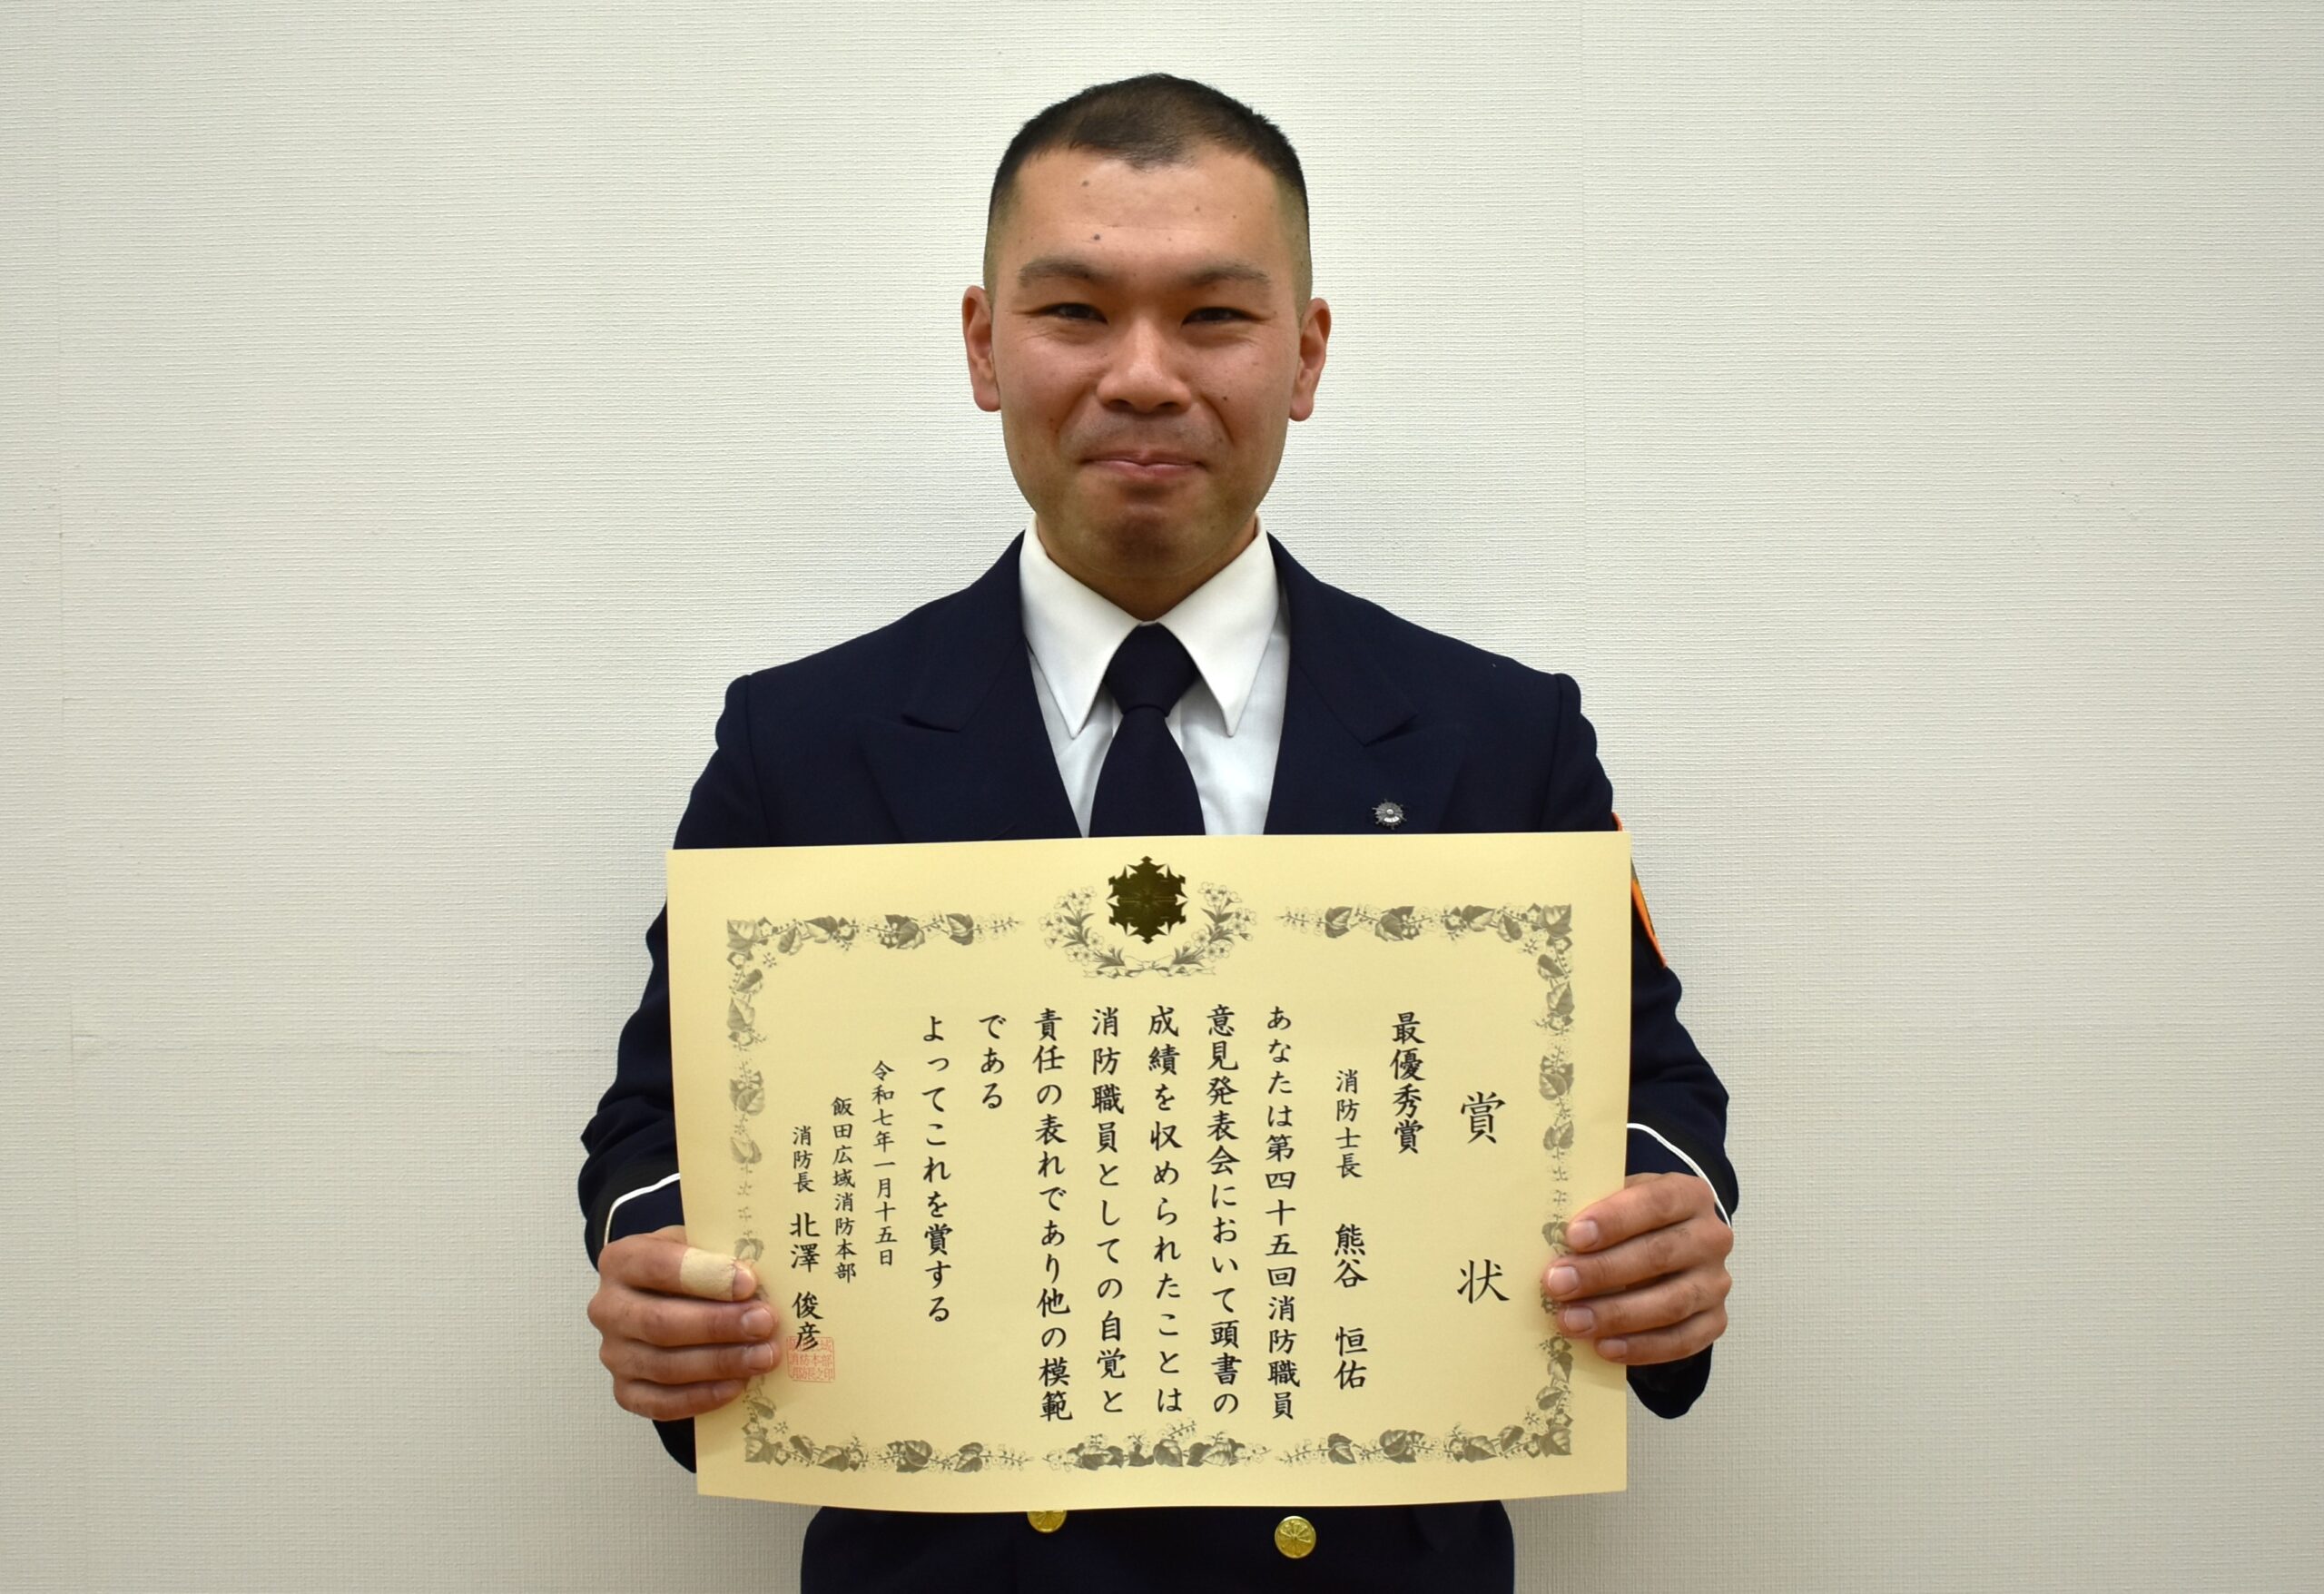 賞状
最優秀賞
消防士長 熊谷 恒佑
あなたは第四十五回消防職員
意見発表会において頭書の
成績を収められたことは
消防職員としての自覚と
責任の表れであり他の模範
である
よってこれを賞する
令和七年一月十五日
飯田広域消防本部
消防長 北澤 俊彦